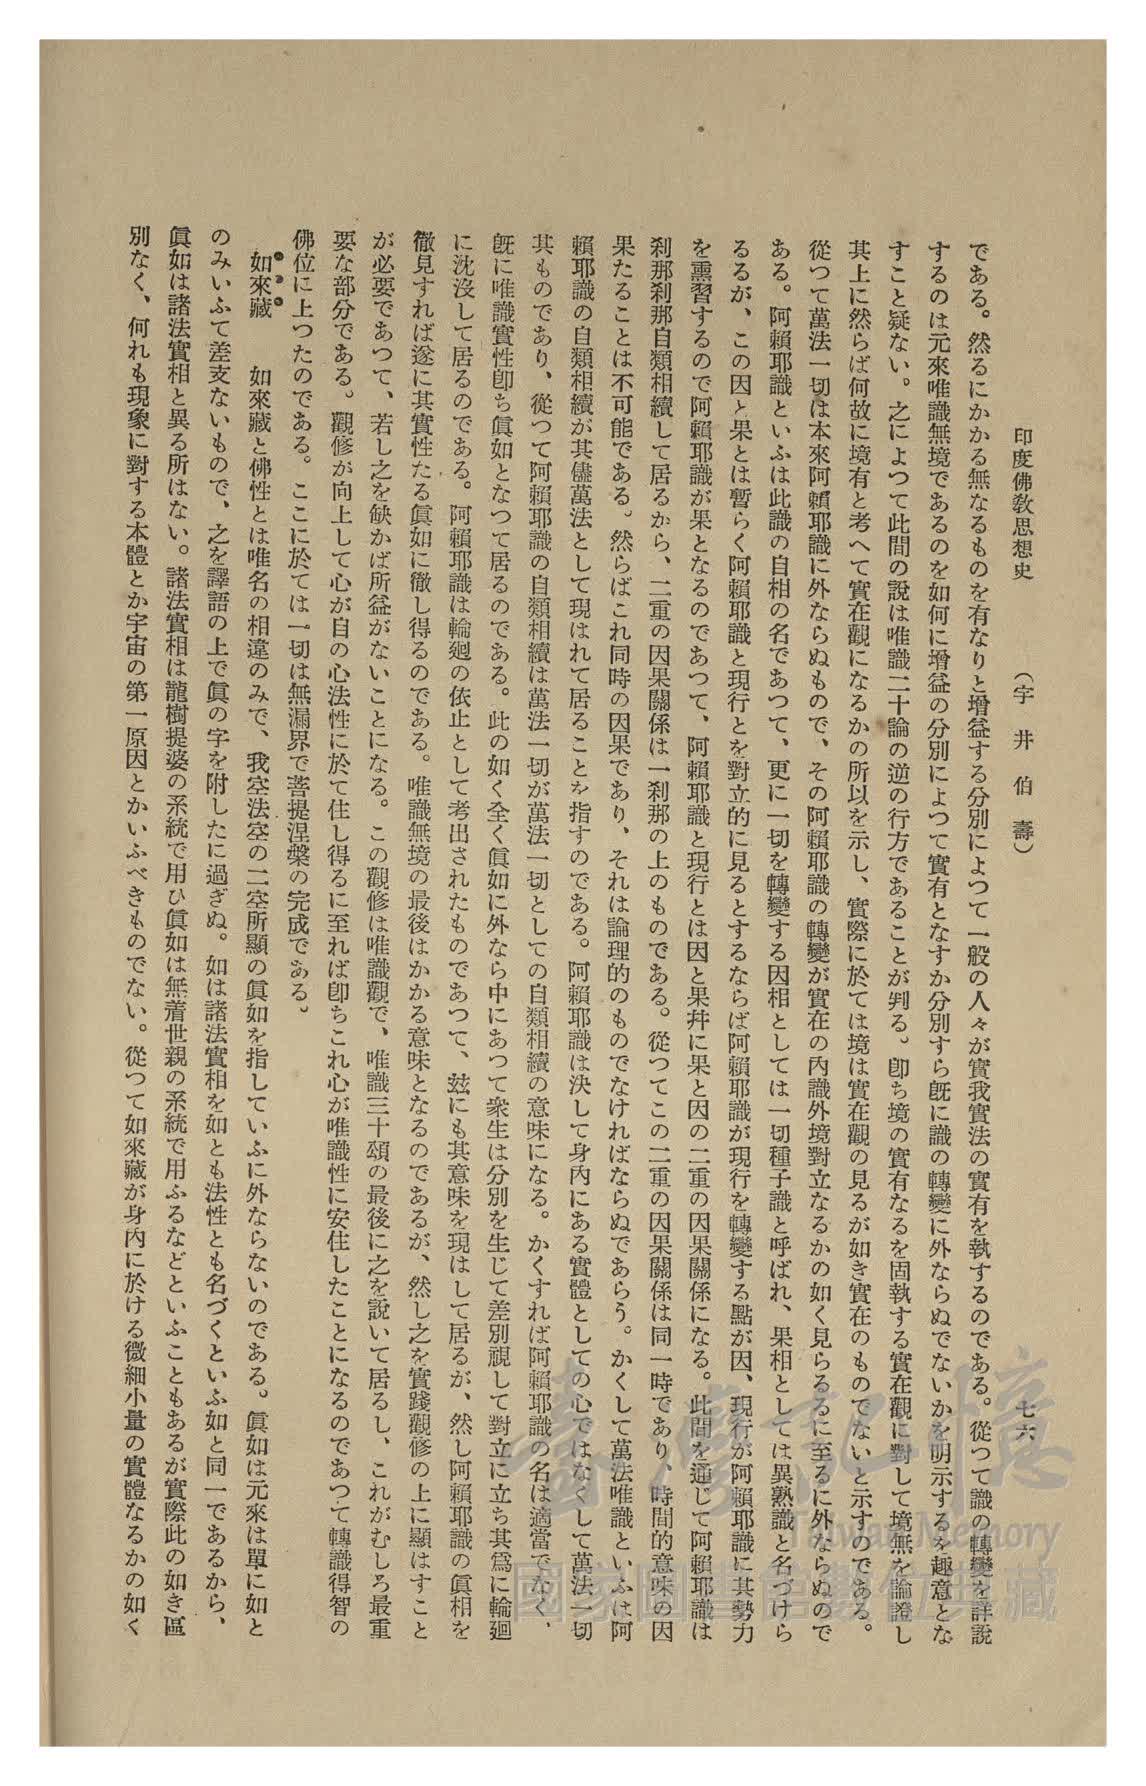 印度佛教思想史　（宇井伯壽）　七六
である。然るにかかる無なるものを有なりと增益する分別によつて一般の人々が實我實法の實有を執するのである。從つて識の轉變を詳說
するのは元來唯識無境であるのを如何に增益の分別によつて實有となすか分別すら既に識の轉變に外ならぬでないかを明示するを趣意とな
すこと疑ない。之によつて此間の說は唯識二十論の逆の行方であることが判る。卽ち境の實有なるを固執する實在觀に對して境無を論證し
其上に然らば何故に境有と考へて實在觀になるかの所以を示し、實際に於ては境は實在觀の見るが如き實在のものでないと示すのである。
從つて萬法一切は本來阿賴耶識に外ならぬもので、その阿賴耶識の轉變が實在の內識外境對立なるかの如く見らるるに至るに外ならぬので
ある。阿賴耶識といふは此識の自相の名であつて、更に一切を轉變する因相としては一切種子識と呼ばれ、果相としては異熟識と名づけら
るるが、この因と果とは暫らく阿賴耶識と現行とを對立的に見るとするならば阿賴耶識が現行を轉變する點が因、現行が阿賴耶識に其勢力
を熏習するので阿賴耶識が果となるのであつて、阿賴耶識と現行とは因と果幷に果と因の二重の因果關係になる。此間を通じて阿賴耶識は
刹那刹那自類相續して居るから、二重の因果關係は一刹那の上のものである。從つてこの二重の因果關係は同一時であり、時間的意味の因
果たることは不可能である。然らばこれ同時の因果であり、それは論理的のものでなければならぬであらう。かくして萬法唯識といふは阿
賴耶識の自類相續が其儘萬法として現はれて居ることを指すのである。阿賴耶識は決して身內にある實體としての心ではなくして萬法一切
其ものであり、從つて阿賴耶識の自類相續は萬法一切が萬法一切としての自類相續の意味になる。かくすれば阿賴耶識の名は適當でなく、
既に唯識實性卽ち眞如となつて居るのである。此の如く全く眞如に外なら中にあつて衆生は分別を生じて差別視して對立に立ち其爲に輪廻
に沈沒して居るのである。阿賴耶識は輪廻の依止として考出されたものであつて、玆にも其意味を現はして居るが、然し阿賴耶識の眞相を
徹見すれば遂に其實性たる眞如に徹し得るのである。唯識無境の最後はかかる意味となるのであるが、然し之を實踐觀修の上に顯はすこと
が必要であつて、若し之を缺かば所益がないことになる。この觀修は唯識觀で、唯識三十頌の最後に之を說いて居るし、これがむしろ最重
要な部分である。觀修が向上して心が自の心法性に於て住し得るに至れば卽ちこれ心が唯識性に安住したことになるのであつて轉識得智の
佛位に上つたのである。ここに於ては一切は無漏界で菩提涅槃の完成である。
如來藏　如來藏と佛性とは唯名の相違のみで、我空法空の二空所顯の眞如を指していふに外ならないのである。眞如は元來は單に如と
のみいふて差支ないもので、之を譯語の上で眞の字を附したに過ぎぬ。如は諸法實相を如とも法性とも名づくといふ如と同一であるから、
眞如は諸法實相と異る所はない。諸法實相は龍樹提婆の系統で用ひ眞如は無着世親の系統で用ふるなどといふこともあるが實際此の如き區
別なく、何れも現象に對する本體とか宇宙の第一原因とかいふべきものでない。從つて如來藏が身內に於ける微細小量の實體なるかの如く
臺灣記憶
Taiwan Memory
國家圖書館數位典藏